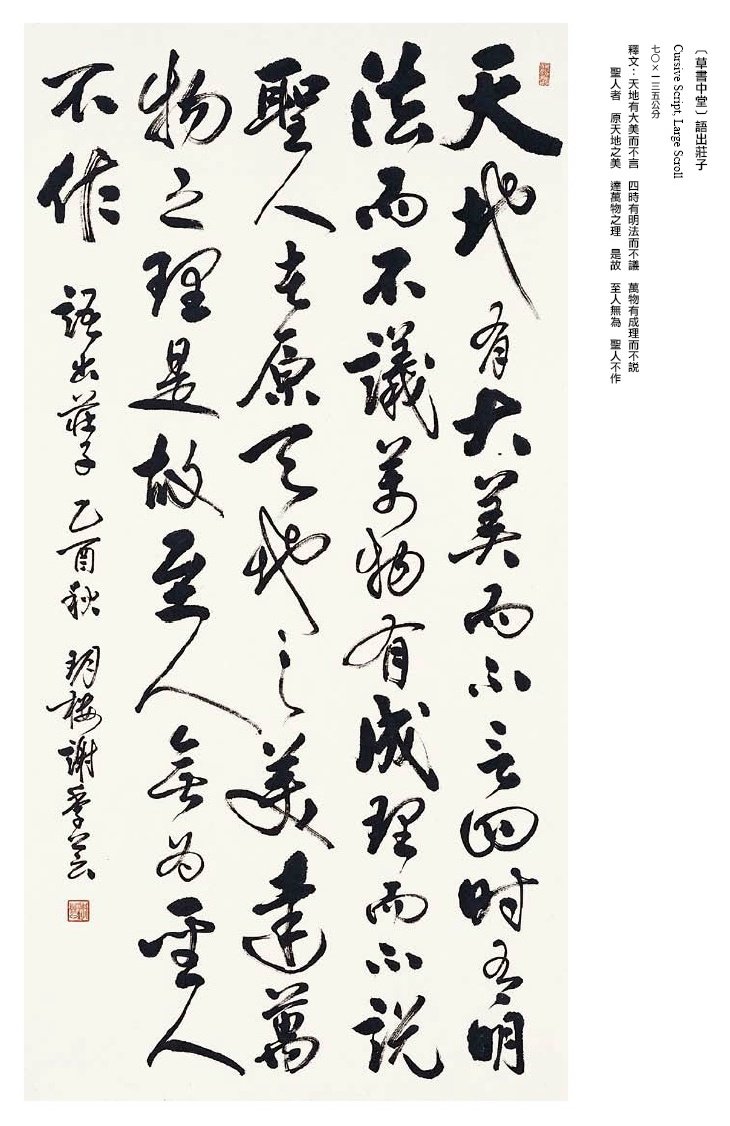 〔草書中堂〕語出莊子
Cursive Script, Large Scroll
七〇×一三五公分
釋文：天地有大美而不言　四時有明法而不議　萬物有成理而不說
聖人者　原天地之美　達萬物之理　是故　至人無為　聖人不作
天地有大美而不言四时有明
法而不議萬物有成理而不說
聖人者原天地之美達萬
物之理是故至人無為聖人
不作
語出莊子 乙酉秋 謝季芸